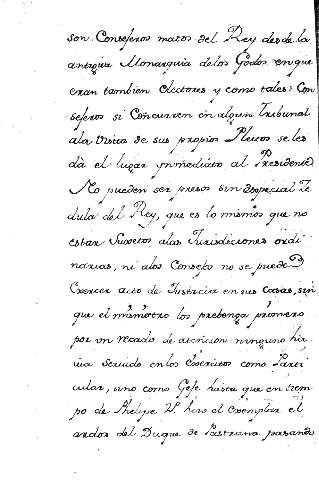 son Consejeros natos del Rey desde la
antigua Monarquia de los Godos en que
eran tambien electores y como tales Con
sejeros si Concurren en algun Tribunal
ala Vista de sus propios Pleitos se les
dà el lugar ynmediato al Presidente
No pueden ser presos sin especial Ze
dula del Rey, que es lo mismo que no
estar Sugetos alas Jurisdiciones ordi
narias, ni alos Consejo no se puede
Exercer acto de Justicia en sus Casas, sin
que el ministro los prebenga primero
por un recado de atencion ninguno hir
via seruido en los Exercitos como Parti
cular, sino como Gefe hasta que en tiem
po de Phelipe V. hizo el exemplar el
ardor del Duque de Pastrana pasando